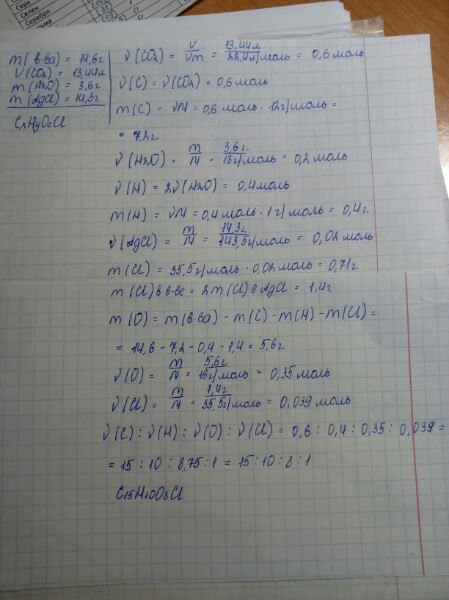 Селен
Серебро
m(в-ва) = 14,6г
V(CO₂) = 13,44л
m(H₂O) = 3,6г
m(AgCl) = 14,3г
CxHyOzCl
ν(CO₂) = V/Vm = 13,44л/22,4л/моль = 0,6 моль
ν(C) = ν(CO₂) = 0,6 моль
m(C) = νM = 0,6 моль · 12г/моль =
= 7,2г
ν(H₂O) = m/M = 3,6г/18г/моль = 0,2 моль
ν(H) = 2ν(H₂O) = 0,4 моль
m(H) = νM = 0,4 моль · 1г/моль = 0,4г
ν(AgCl) = m/M = 14,3г/143,5г/моль = 0,02 моль
m(Cl) = 35,5г/моль · 0,02 моль = 0,71г
m(Cl) в в-ве = 2m(Cl) в AgCl = 1,4г
m(O) = m(в-ва) - m(C) - m(H) - m(Cl) =
= 14,6 - 7,2 - 0,4 - 1,4 = 5,6г
ν(O) = m/M = 5,6г/16г/моль = 0,35 моль
ν(Cl) = m/M = 1,4г/35,5г/моль = 0,039 моль
ν(C) : ν(H) : ν(O) : ν(Cl) = 0,6 : 0,4 : 0,35 : 0,039 =
= 15 : 10 : 8,75 : 1 = 15 : 10 : 8 : 1
C₁₅H₁₀O₈Cl